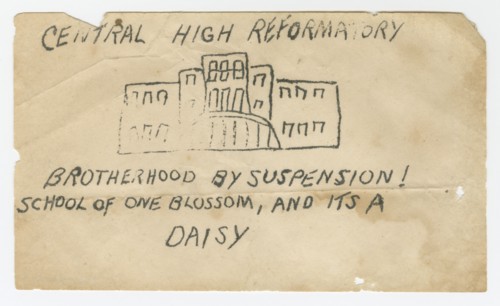 CENTRAL HIGH REFORMATORY
BROTHERHOOD BY SUSPENSION!
SCHOOL OF ONE BLOSSOM, AND ITS A
DAISY